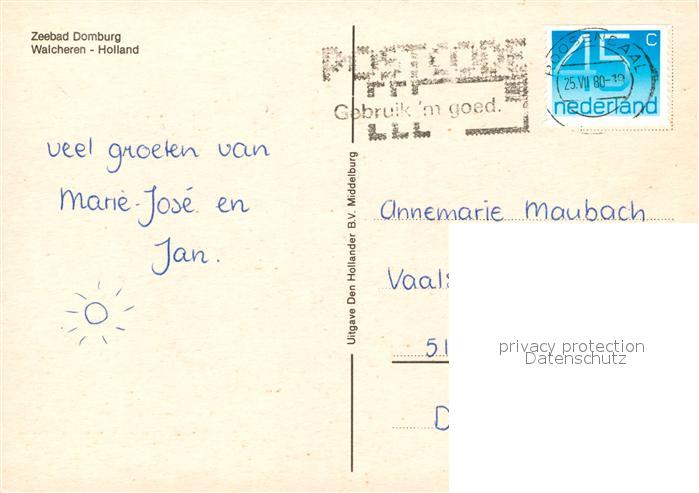 Zeebad Domburg
Walcheren - Holland
POSTCODE
Gebruik 'm goed.
ROOSENDAAL
25.VII 80-19
45 C
nederland
veel groeten van
Marië-José en
Jan.
Uitgave Den Hollander B.V. Middelburg
Annemarie Maubach
Vaals
51
D
privacy protection
Datenschutz